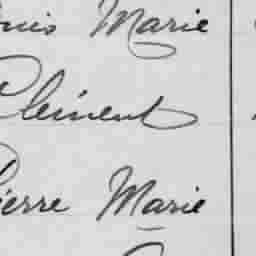 ouis Marie
Clément
Pierre Marie